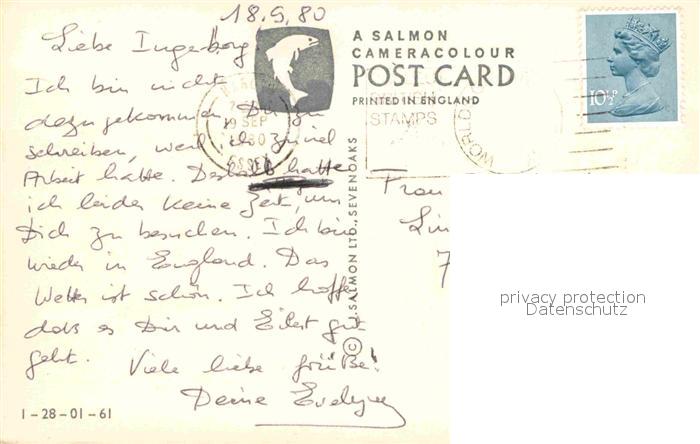 18.9.80
Liebe Ingeborg!
Ich bin nicht
dazu gekommen, Dir zu
schreiben, weil ich zuviel
Arbeit hatte. Deshalb hatte
ich leider keine Zeit, um
Dich zu besuchen. Ich bin
wieder in England. Das
Wetter ist schön. Ich hoffe
dass es Dir und Eilert gut
geht. Viele liebe Grüße!
Deine Evelyn
1-28-01-61
A SALMON
CAMERACOLOUR
POST CARD
PRINTED IN ENGLAND
© J. SALMON LTD., SEVENOAKS
19 SEP
1980
ESSEX
STAMPS
WORLD
10½P
Frau
Lin
7
privacy protection
Datenschutz